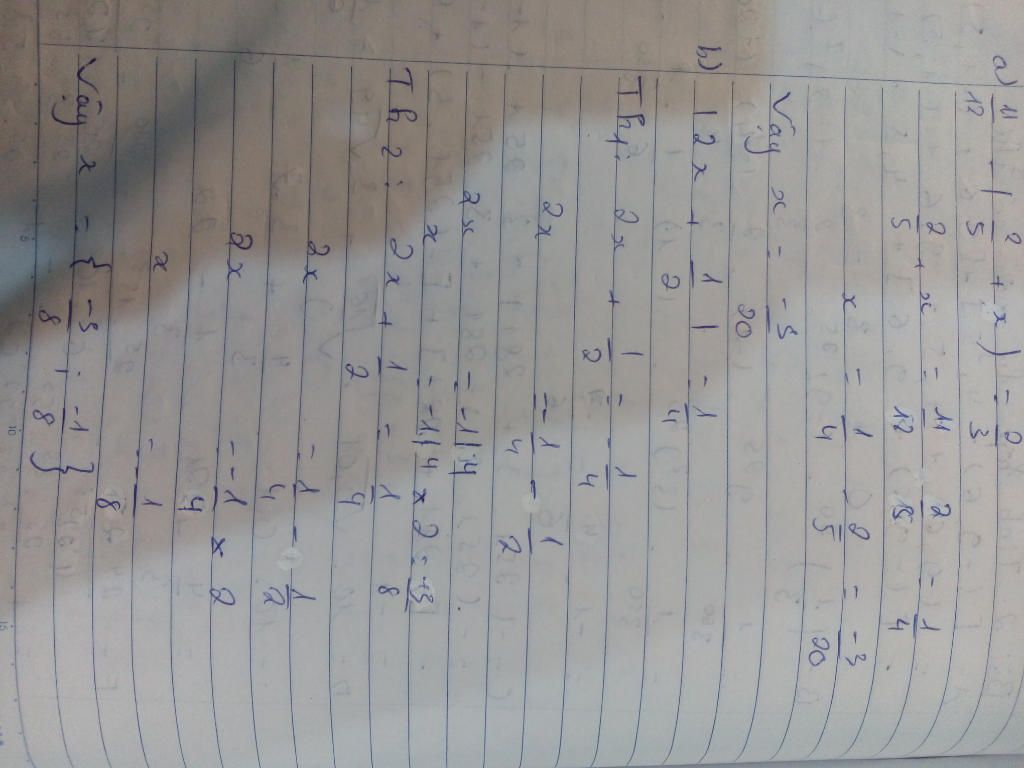 a) 11/12 - (2/5 + x) = 2/3
2/5 + x = 11/12 - 2/3 = 1/4
x = 1/4 - 2/5 = -3/20
Vậy x = -3/20
b) |2x + 1/2| = 1/4
Th1: 2x + 1/2 = -1/4
2x = -1/4 - 1/2
2x =
x =
Th2: 2x + 1/2 = 1/4
2x = 1/4 - 1/2
2x = -1/4 x 2
x = -1/8
Vậy x = {-3/8; -1/8}